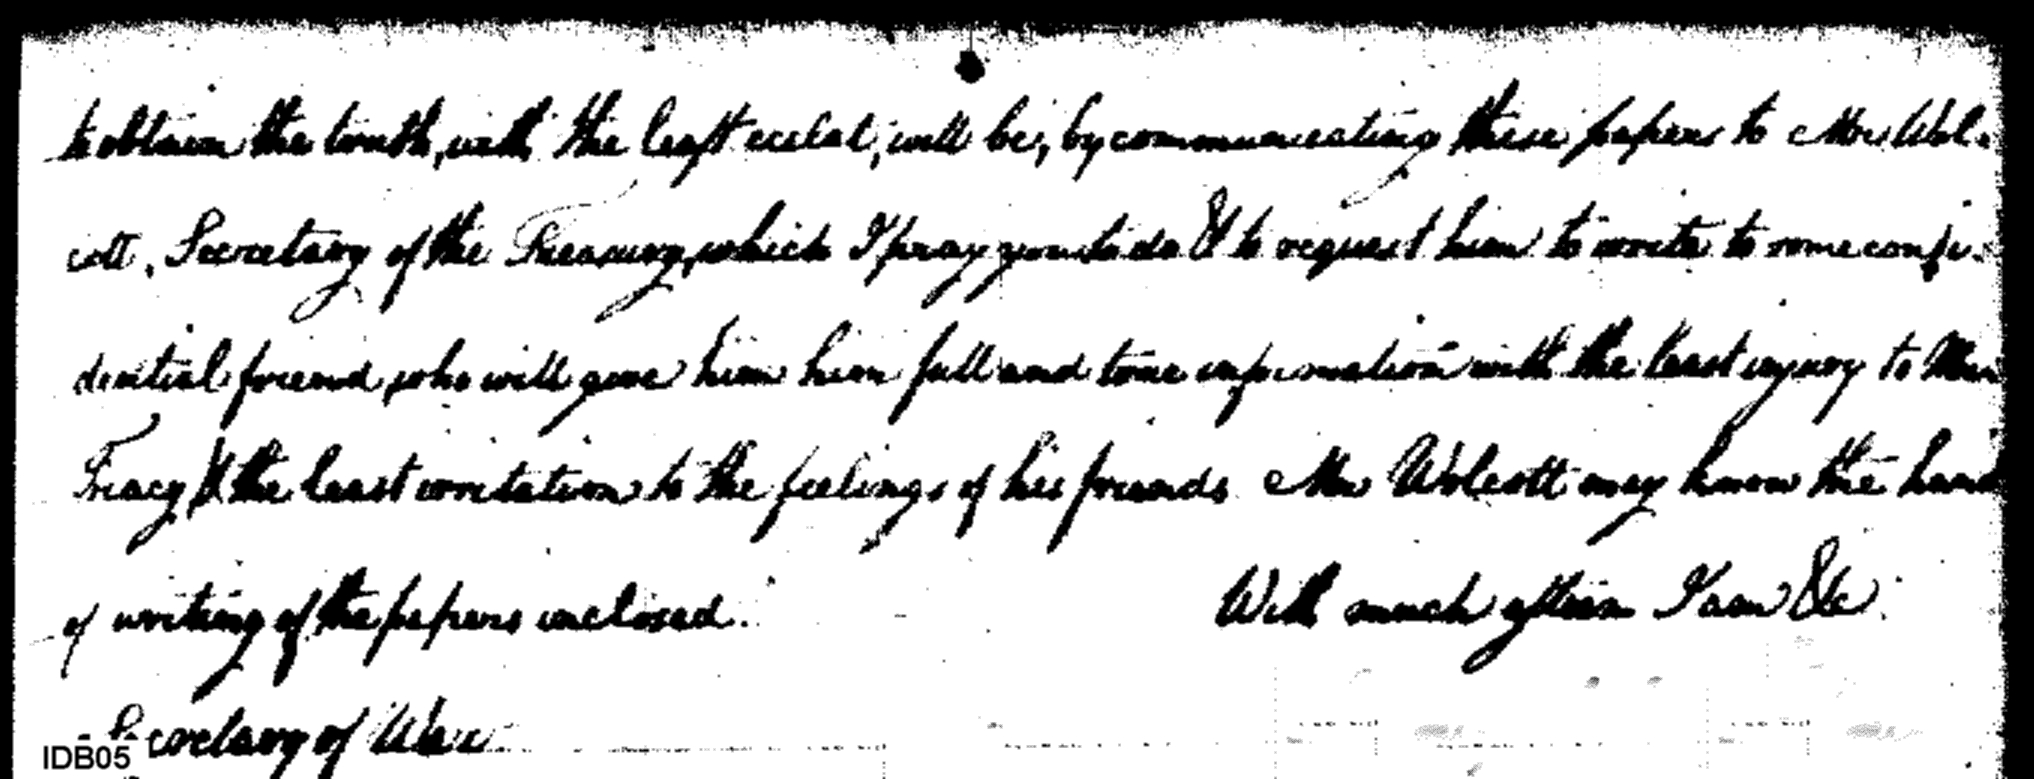 to obtain the truth, with the least eclat, will be, by communicating these papers to Mr Wol-
cott, Secretary of the Treasury, which I pray you to do & to request him to write to some confi-
dential friend, who will give him him full and true information with the least injury to Mr
Tracy & the least irritation to the feelings of his friends Mr Wolcott may know the hand
of writing of the papers inclosed.
With much esteem I am &c
Secretary of War
IDB05